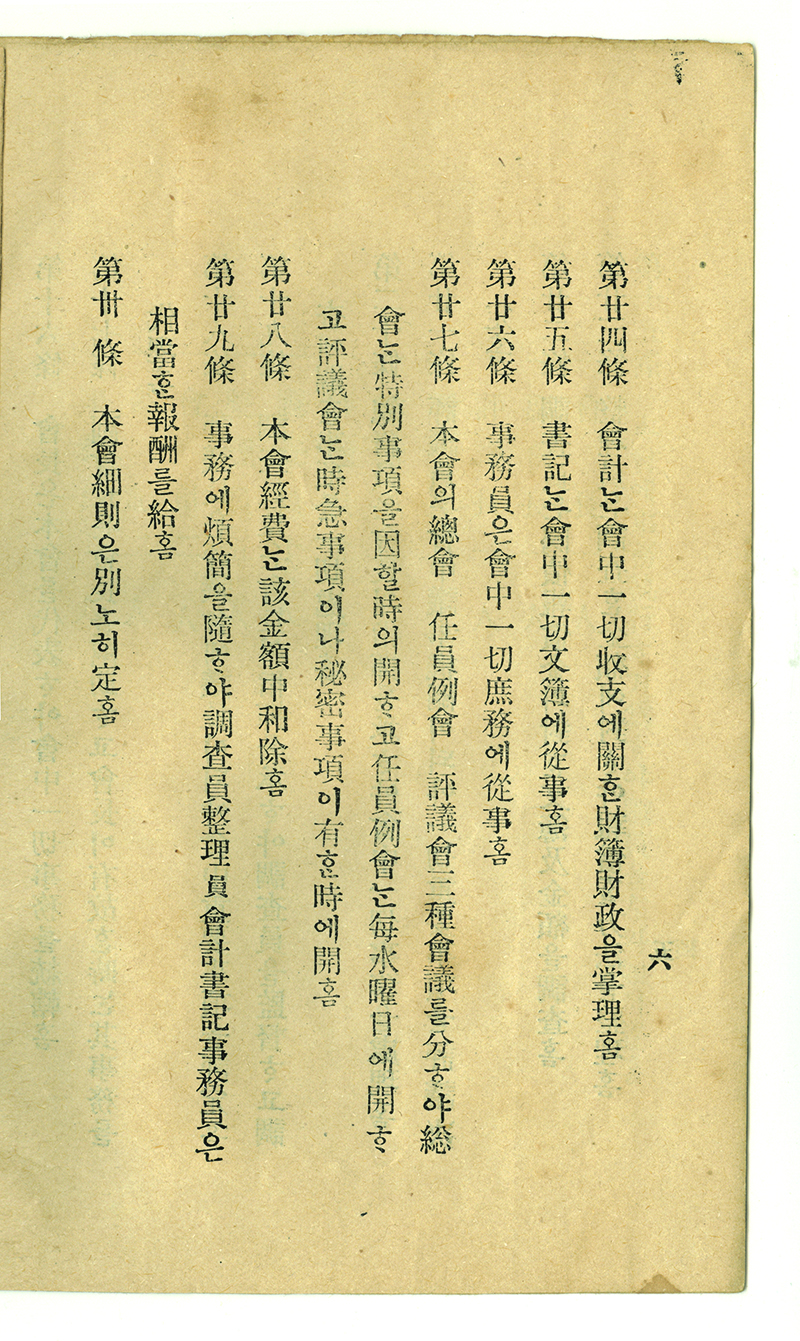 六
第廿四條 會計ᄂᆞᆫ會中一切收支에關ᄒᆞᆫ財簿財政을掌理홈
第廿五條 書記ᄂᆞᆫ會中一切文簿에從事홈
第廿六條 事務員은會中一切庶務에從事홈
第廿七條 本會의總會 任員例會 評議會三種會議를分ᄒᆞ야総
會ᄂᆞᆫ特別事項을因할時의開ᄒᆞ고任員例會ᄂᆞᆫ每水曜日에開ᄒᆞ
고評議會ᄂᆞᆫ時急事項이나秘密事項이有ᄒᆞᆫ時에開홈
第廿八條 本會經費ᄂᆞᆫ該金額中和除홈
第廿九條 事務에煩簡을隨ᄒᆞ야調查員整理員會計書記事務員은
相當ᄒᆞᆫ報酬를給홈
第卅條 本會細則은別노히定홈